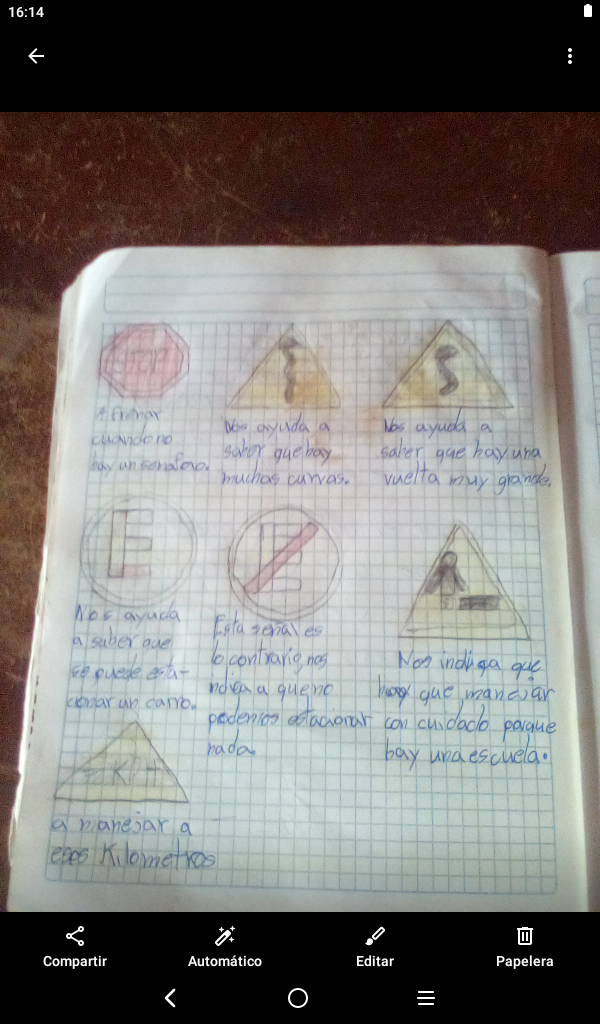 16:14
STOP
A frenar
cuando no
hay un semaforo.
Nos ayuda a
saber que hay
muchas curvas.
Nos ayuda a
saber que hay una
vuelta muy grande.
E
Nos ayuda
a saber que
se puede esta-
cionar un carro.
E
Esta señal es
lo contrario, nos
indica a que no
podemos estacionar
nada.
Nos indica que
hay que manejar
con cuidado porque
hay una escuela.
a manejar a
esos Kilometros
Compartir
Automático
Editar
Papelera